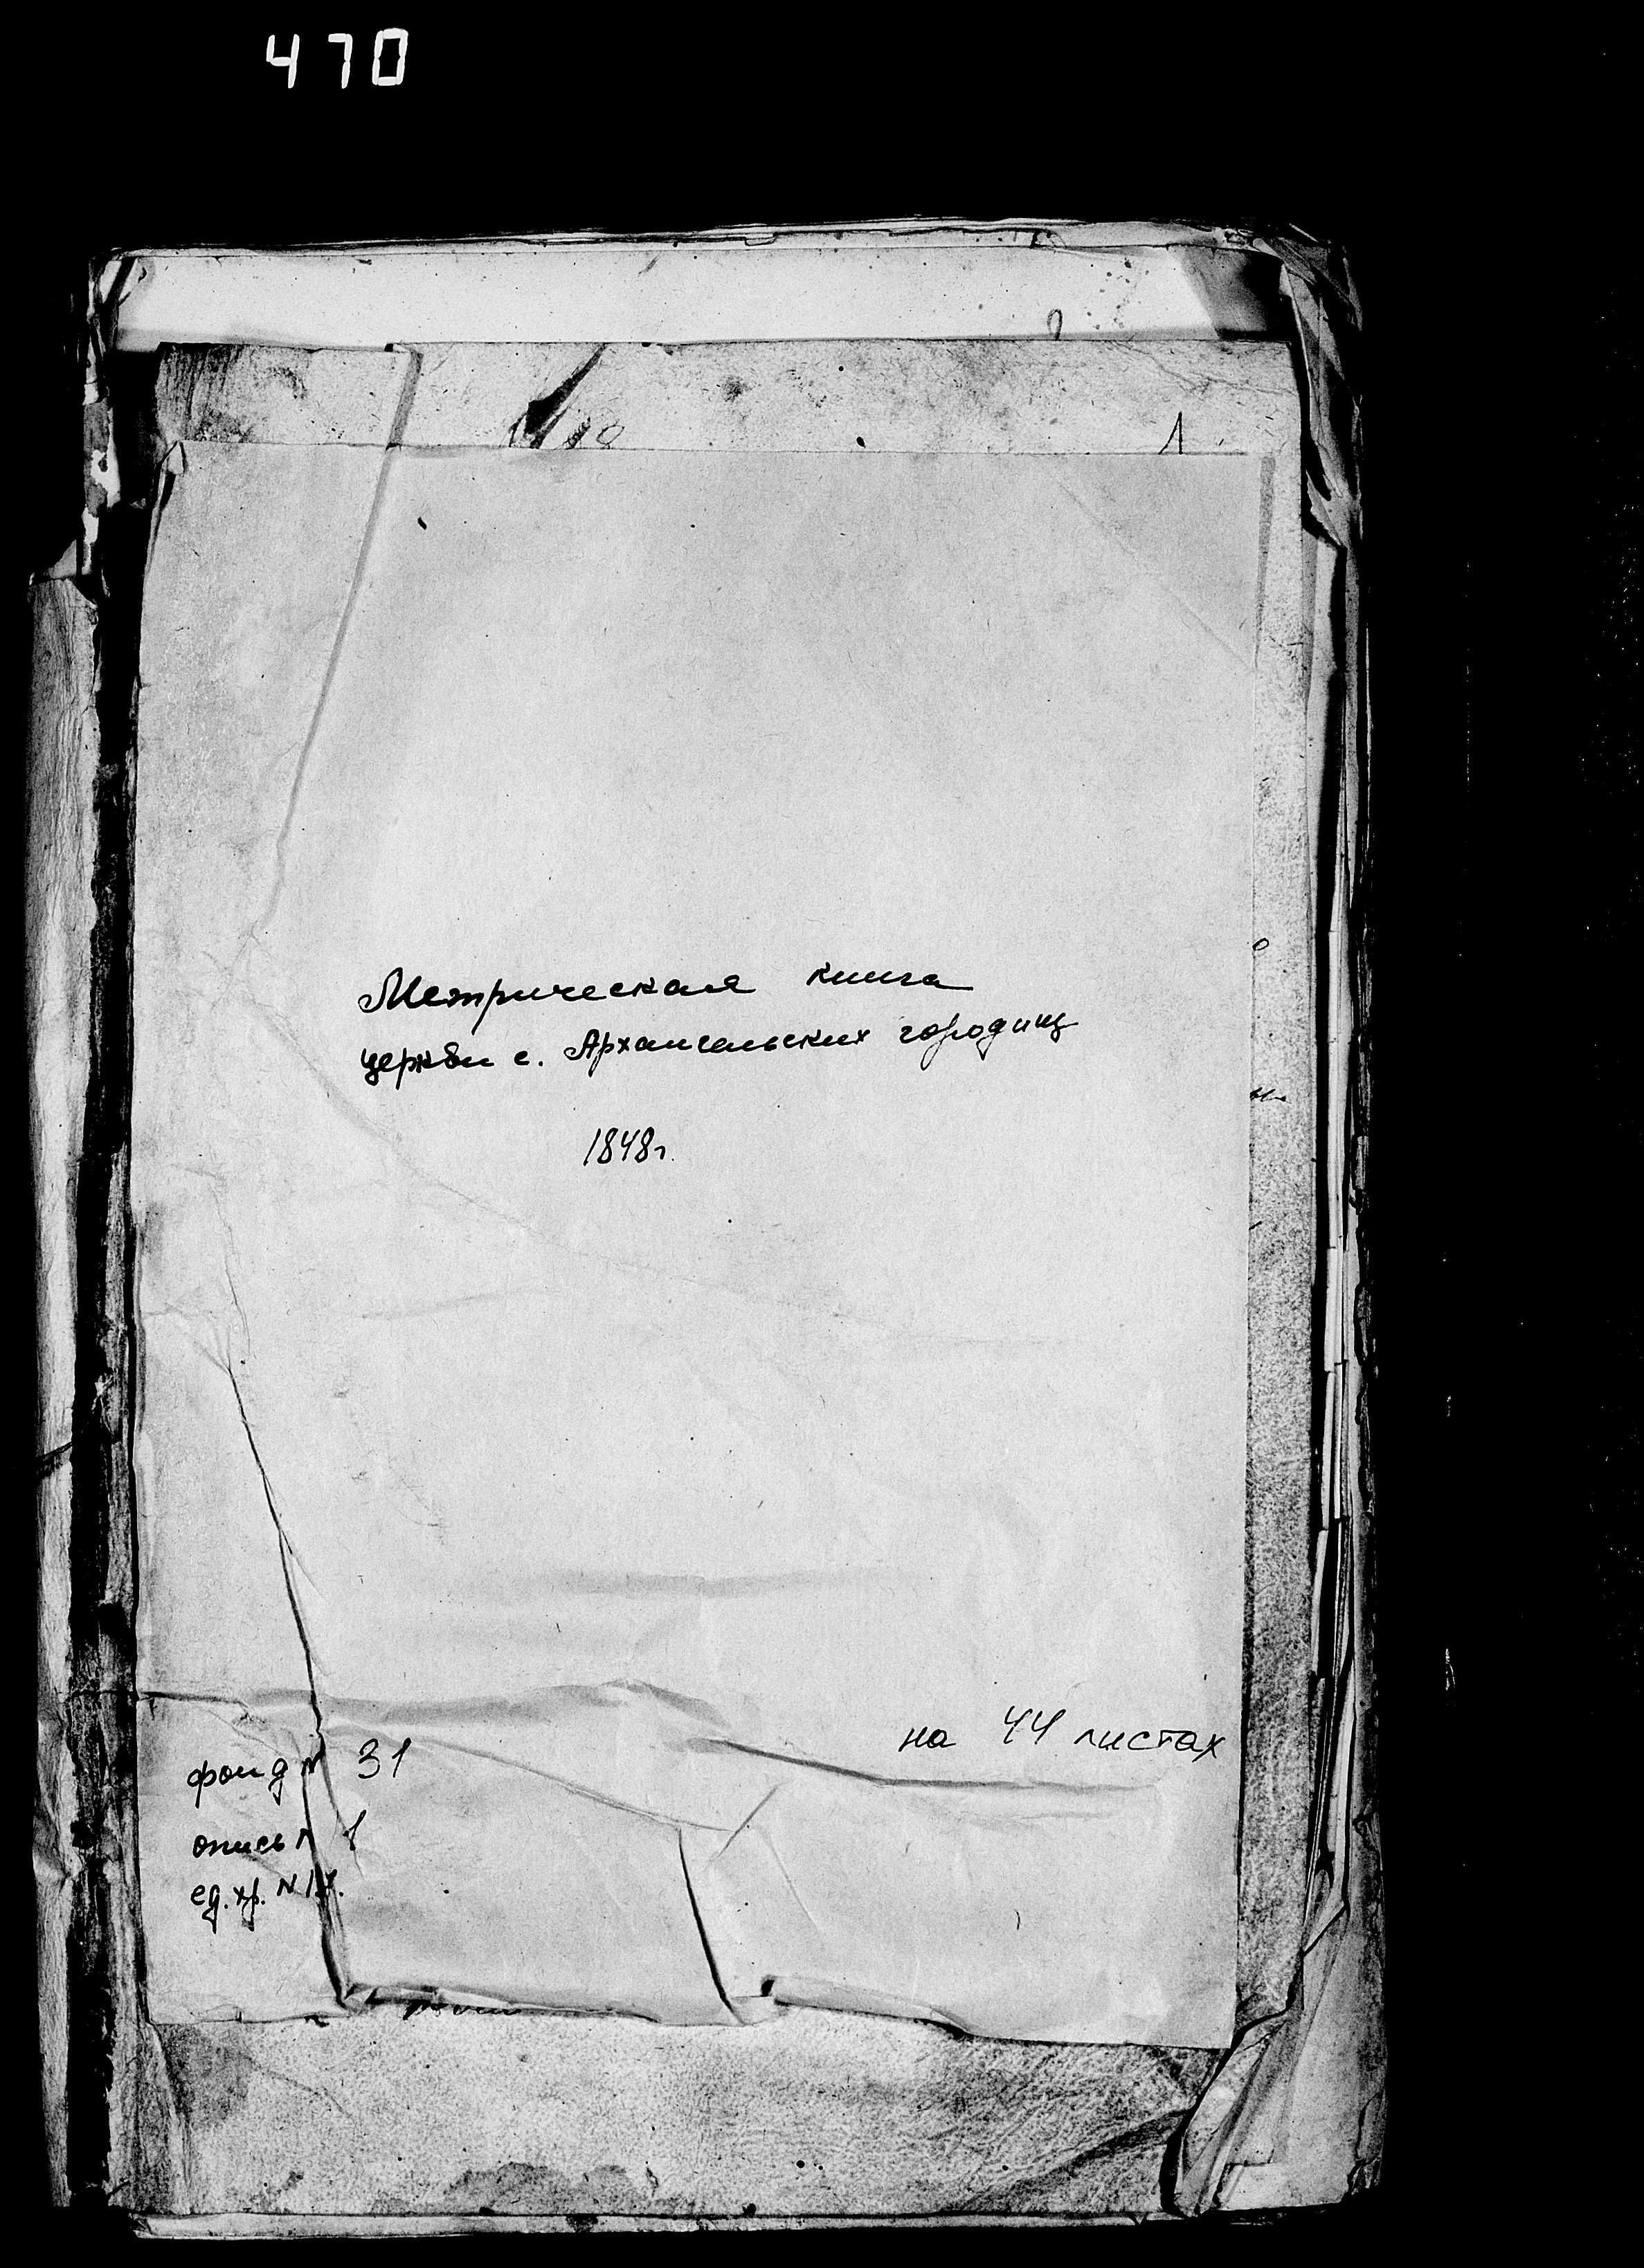 470
1
Метрическая книга
церкви с. Архангельских городищ
1848г.
на 44 листах
фонд N 31
опись N 1
ед. хр. N